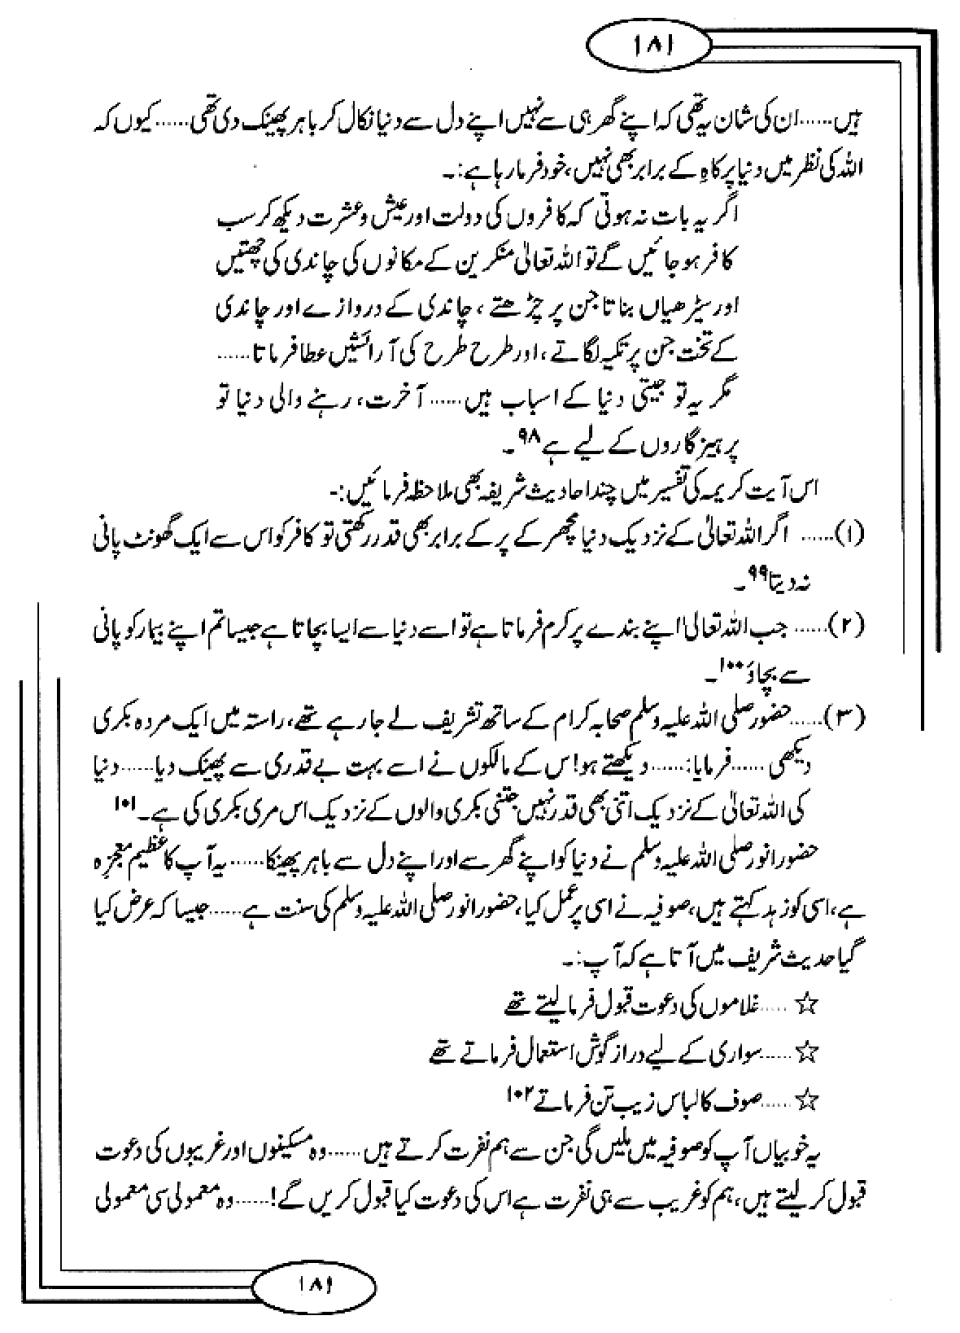 ۱۸۱
ہیں......ان کی شان یہ تھی کہ اپنے گھر ہی سے نہیں اپنے دل سے دنیا نکال کر باہر پھینک دی تھی......کیوں کہ
اللہ کی نظر میں دنیا پر کاہ کے برابر بھی نہیں، خود فرما رہا ہے:۔
اگر یہ بات نہ ہوتی کہ کافروں کی دولت اور عیش و عشرت دیکھ کر سب
کافر ہو جائیں گے تو اللہ تعالیٰ منکرین کے مکانوں کی چاندی کی چھتیں
اور سیڑھیاں بناتا جن پر چڑھتے، چاندی کے دروازے اور چاندی
کے تخت جن پر تکیہ لگاتے، اور طرح طرح کی آرائشیں عطا فرماتا......
مگر یہ تو جیتی دنیا کے اسباب ہیں...... آخرت، رہنے والی دنیا تو
پرہیزگاروں کے لیے ہے ۹۸۔
اس آیت کریمہ کی تفسیر میں چند احادیث شریفہ بھی ملاحظہ فرمائیں:-
(۱)...... اگر اللہ تعالیٰ کے نزدیک دنیا مچھر کے پر کے برابر بھی قدر رکھتی تو کافر کو اس سے ایک گھونٹ پانی
نہ دیتا ۹۹۔
(۲)...... جب اللہ تعالیٰ اپنے بندے پر کرم فرماتا ہے تو اسے دنیا سے ایسا بچاتا ہے جیسا تم اپنے بیمار کو پانی
سے بچاؤ ۱۰۰۔
(۳)......حضور صلی اللہ علیہ وسلم صحابہ کرام کے ساتھ تشریف لے جا رہے تھے، راستہ میں ایک مردہ بکری
دیکھی...... فرمایا:...... دیکھتے ہو! اس کے مالکوں نے اسے بہت بے قدری سے پھینک دیا......دنیا
کی اللہ تعالیٰ کے نزدیک اتنی بھی قدر نہیں جتنی بکری والوں کے نزدیک اس مری بکری کی ہے۔۱۰۱
حضور انور صلی اللہ علیہ وسلم نے دنیا کو اپنے گھر سے اور اپنے دل سے باہر پھینکا...... یہ آپ کا عظیم معجزہ
ہے، اسی کو زہد کہتے ہیں، صوفیہ نے اسی پر عمل کیا، حضور انور صلی اللہ علیہ وسلم کی سنت ہے......جیسا کہ عرض کیا
گیا حدیث شریف میں آتا ہے کہ آپ:۔
☆ .....غلاموں کی دعوت قبول فرما لیتے تھے
☆ ......سواری کے لیے دراز گوش استعمال فرماتے تھے
☆ ......صوف کا لباس زیب تن فرماتے ۱۰۲
یہ خوبیاں آپ کو صوفیہ میں ملیں گی جن سے ہم نفرت کرتے ہیں......وہ مسکینوں اور غریبوں کی دعوت
قبول کر لیتے ہیں، ہم کو غریب سے ہی نفرت ہے اس کی دعوت کیا قبول کریں گے!......وہ معمولی سی معمولی
۱۸۱